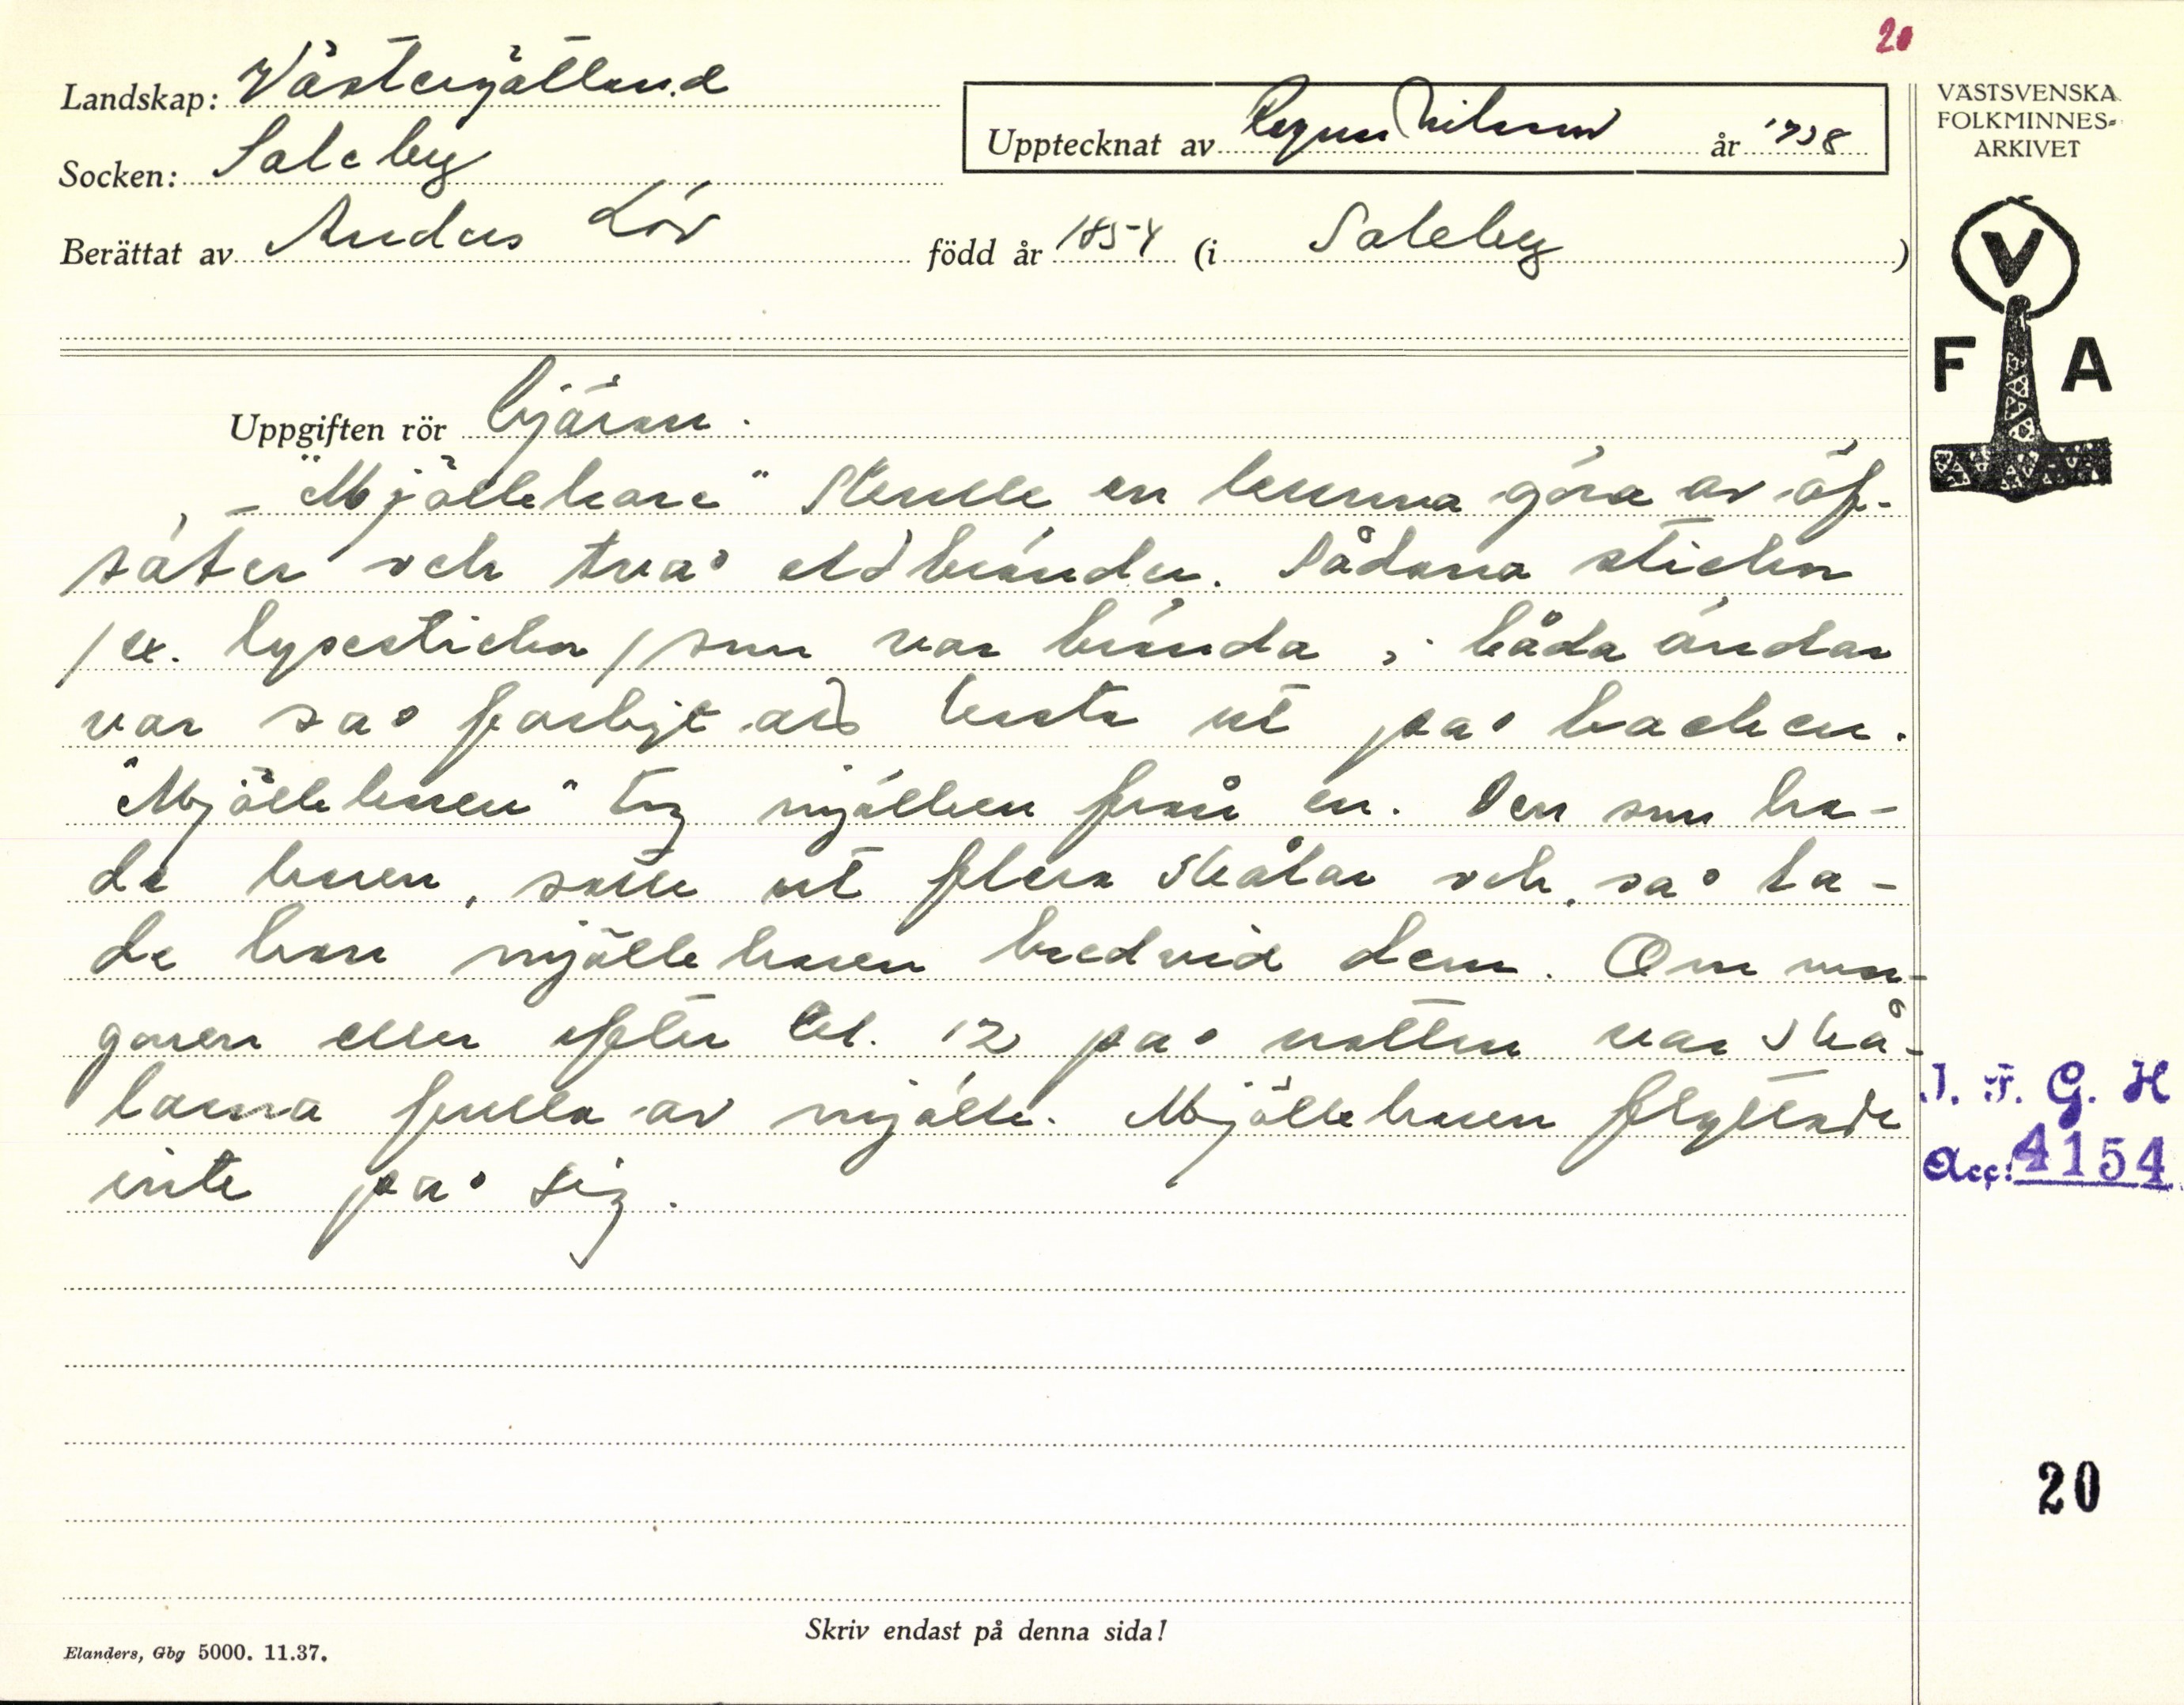 20
Landskap: Västergötland
Socken: Saleby
Upptecknat av Ragnar Nilsson år 1938
Berättat av Anders Löv född år 1854 (i Saleby )
VÄSTSVENSKA
FOLKMINNES-
ARKIVET
V
F A
Uppgiften rör bjäran.
- "Mjölkhare" skulle en kunna göra av
säter och två eldbränder. Sådana stickor
/ex. lysestickor/ som var brända i båda ändar
var så farligt att kasta ut på backen.
"Mjölkharen" tog mjölken från en. Den som ha-
de haren, satte ut flera skålar och så la-
de han mjölkharen bredvid dem. Om mor-
gonen eller efter kl. 12 på natten var skå-
larna fulla av mjölk. Mjölkharen flyttade
inte på sig.
I. F. G. H
Acc: 4154
20
Skriv endast på denna sida!
Elanders, Gbg 5000. 11.37.